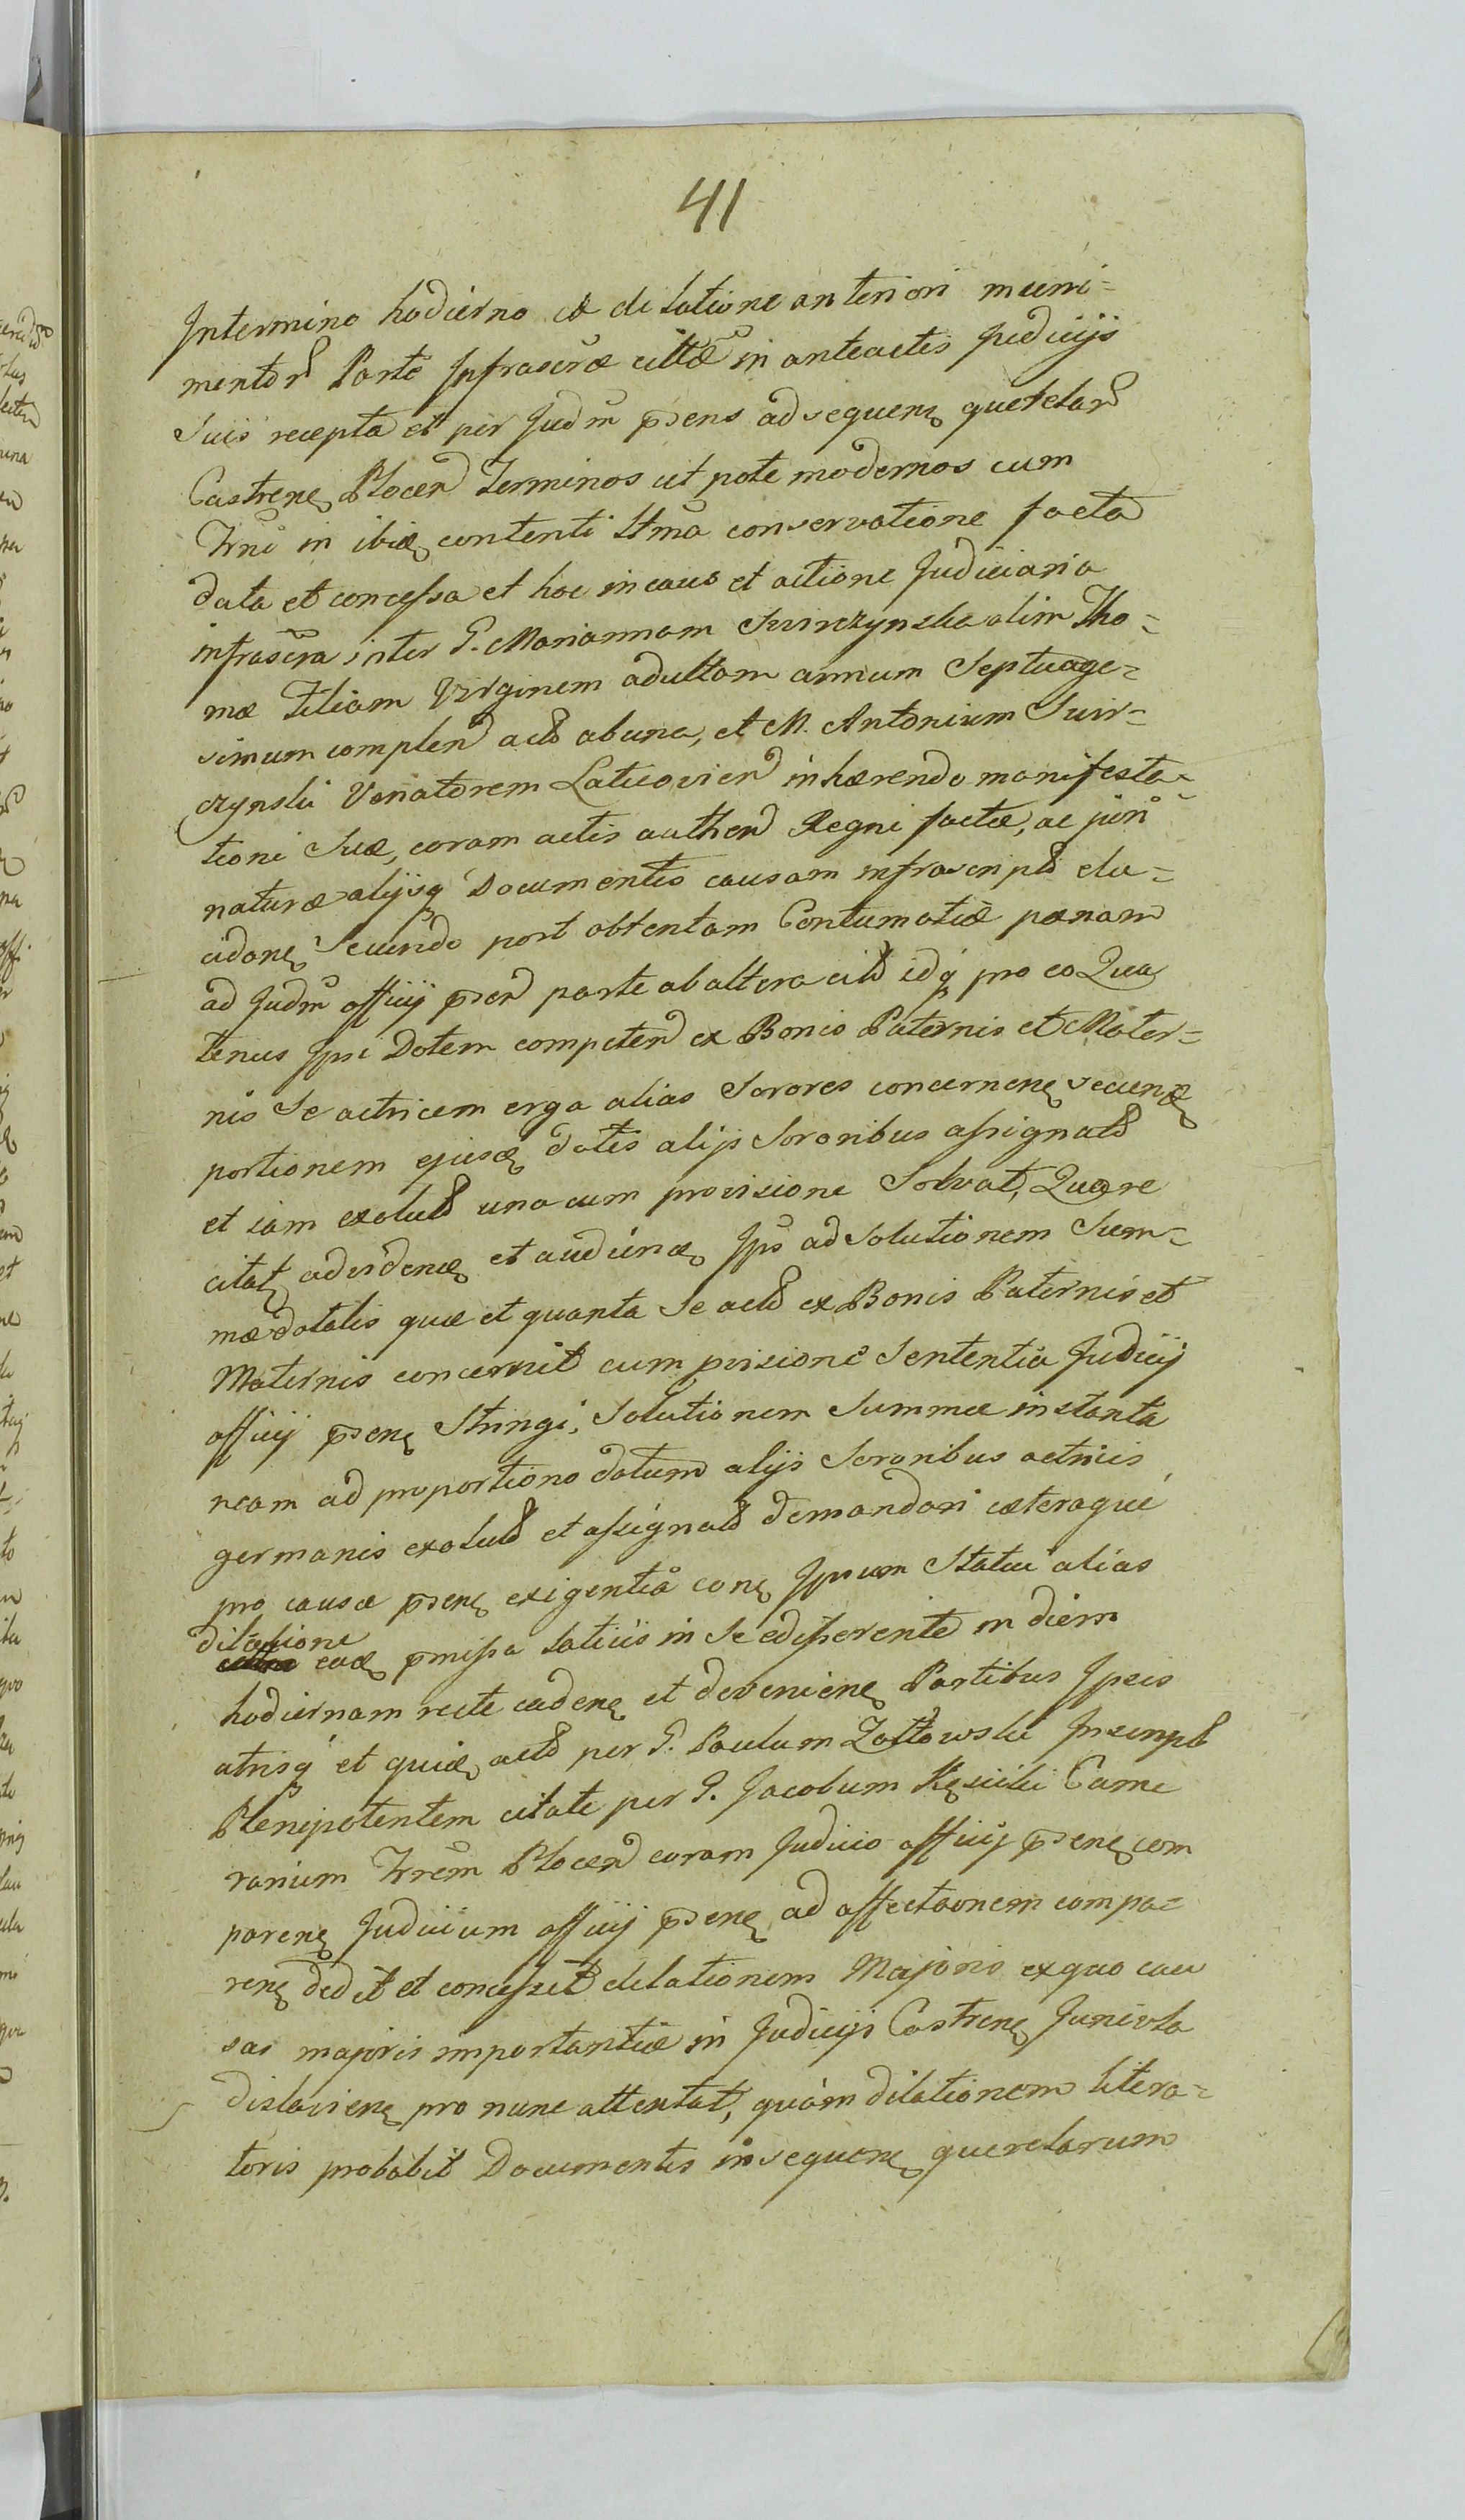 41
Intermino hodierno ex dilatione anteriori muni=
mentor Parte Infrascrae cittae in anteactis Judicijs
Suis recepta et per Judm psens ad sequen querelar
Castren Plocen Terminos ut pote modernos cum
Trni in ibid contenti Ttma conservatione facta
data et concessa et hoc in caus et actione Judiciaria
infrascra inter G. Mariannam Swirczynska olim Tho=
mae Filiam Virginem adultam annum Septuage=
simum complen act ab una, et M. Antonium Swir=
czynski Venatorem Laticovien inhaerendo manifesta=
tioni Suae, coram actis authen Regni factae, ac juri
naturae alijsq Documentis causam infrascript elu=
cidan Secundo post obtentam Contumatiae paenam
ad Judm officij psen parte ab altera citt idq pro eo Qua
tenus Ipsi Dotem competen ex Bonis Paternis et Mater=
nis Se actricem erga alias Sorores concernen secund
portionem ejusd dotis alijs Sororibus assignatt
et iam exolutt una cum provisione Solvat, Quare
citat ad viden et audiend Ips ad Solutionem Sum=
mae dotalis quae et quanta Se act ex Bonis Paternis et
Maternis concernit cum pvisione Sententia Judicij
officij psen Stringi, Solutionem Summae instanta
neam ad proportiono dotum alijs Sororibus actricis
germanis exolutt et assignatt demandari caeteraque
pro causae psen exigentia con Ipsum Statui alias
dilatione
ead pmissa latius in Se edisserente in diem
hodiernam recte caden et devenien Partibus Ipsis
utrisq et quid act per G. Paulum Zołtowski Inscript
Plenipotentem citate per G. Jacobum Came
rarium Trrem Plocen coram Judicio officij psen com
paren Judicium officij psen ad affectaonem compa=
ren dedit et concessit dilationem Majoris ex quo cau
sas majoris importantiae in Judicijs Castren Junivla
dislavien pro nunc attentat, quam dilationem litera=
toris probabit Documentis in sequen querelarum